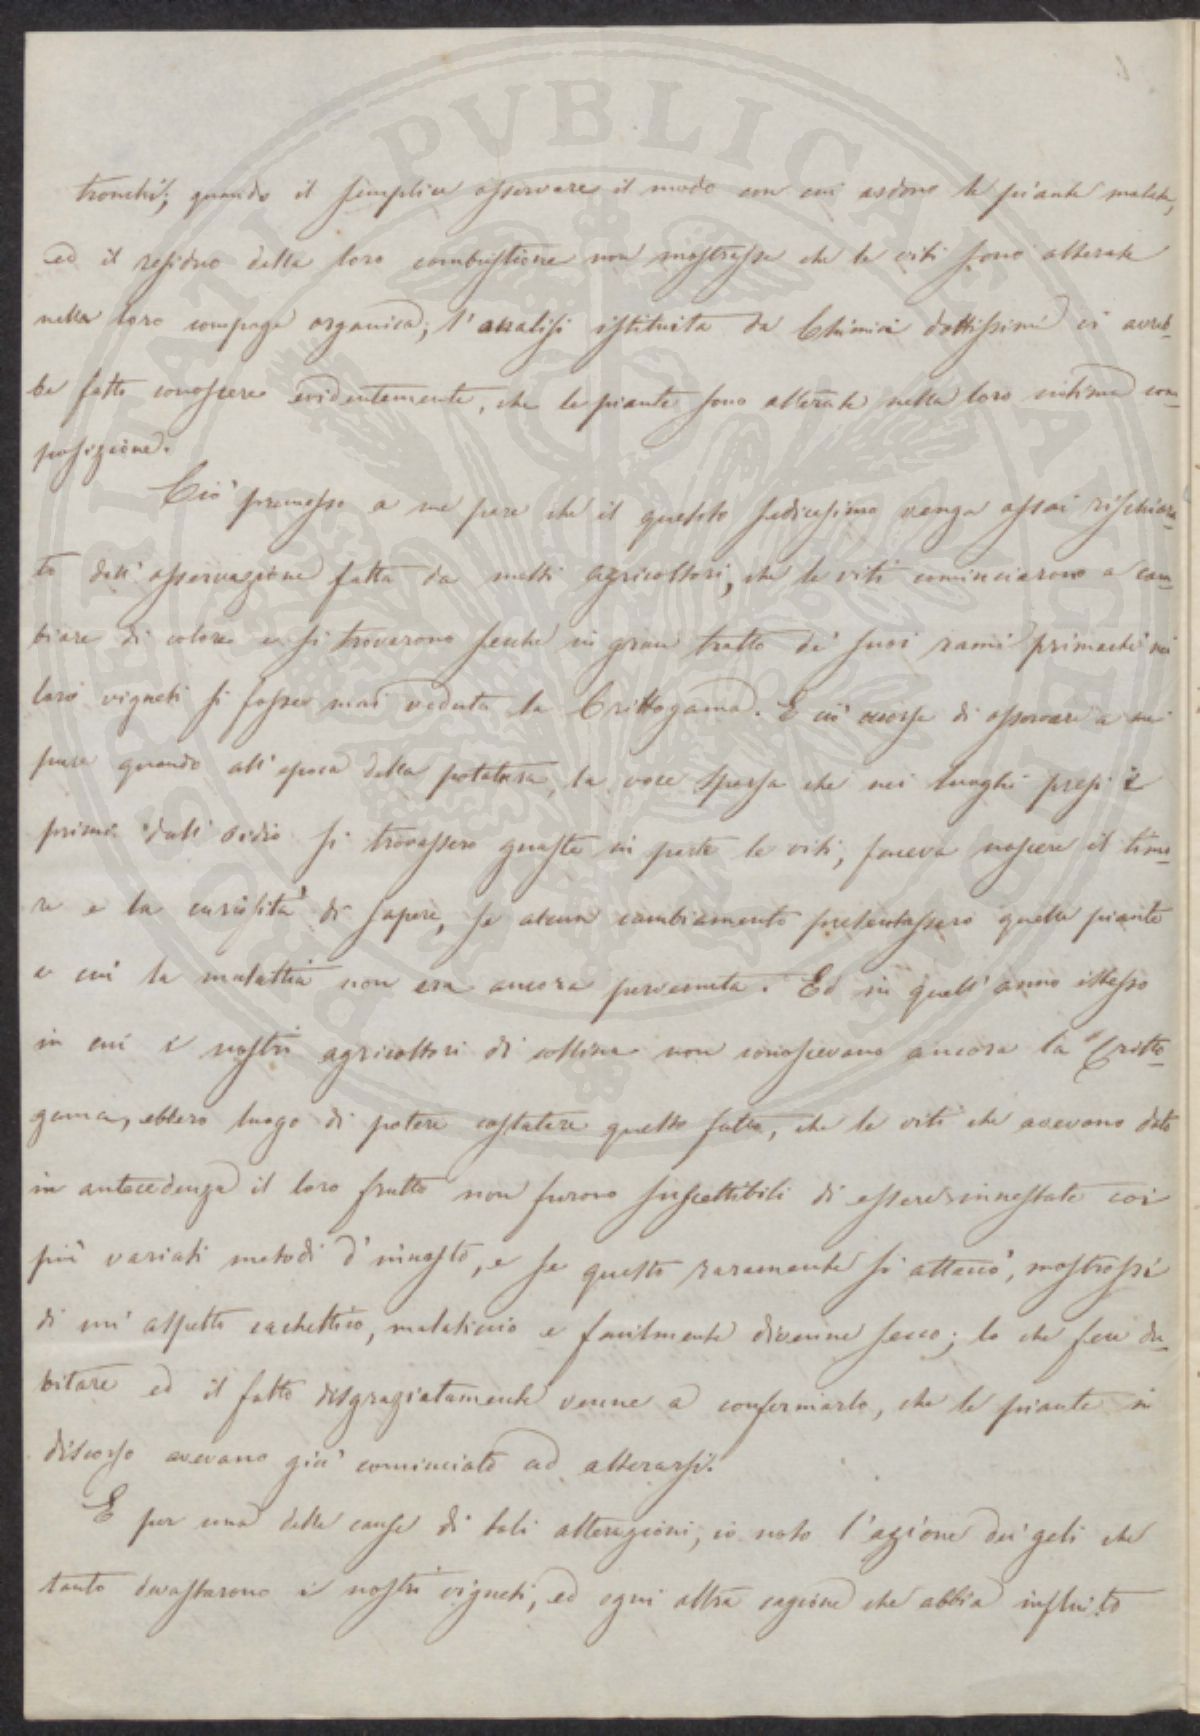 tronchi; quando il semplice osservare il modo con cui ardono le piante malate,
ed il residuo della loro combustione non mostrasse che le viti sono alterate
nella loro compage organica; l'analisi istituita da Chimici dottissimi ci avreb-
be fatto conoscere evidentemente, che le piante sono alterate nella loro intima com-
posizione.
Ciò premesso a me pare che il quesito sedicesimo venga assai rischiara-
to dall'osservazione fatta da molti agricoltori, che le viti cominciarono a cam-
biare di colore e si trovarono secche in gran tratto de' suoi rami primachè nei
loro vigneti si fosse mai veduta la Crittogama. E ciò occorse di osservare a me
pure quando all'epoca della potatura, la voce sparsa che nei luoghi presi i
primi dall'oidio si trovassero guaste in parte le viti, faceva nascere il timo-
re e la curiosità di sapere, se alcun cambiamento presentassero quelle piante
a cui la malattia non era ancora pervenuta. Ed in quell'anno istesso
in cui i nostri agricoltori di collina non conoscevano ancora la Critto-
gama, ebbero luogo di potere costatare questo fatto, che le viti che avevano dato
in antecedenza il loro frutto non furono suscettibili di essere innestate coi
più variati metodi d'innesto, e se questo raramente si attaccò, mostrossi
di un' aspetto cachettico, malaticcio e facilmente divenne secco; lo che fece du-
bitare ed il fatto disgraziatamente venne a confermarlo, che le piante in
discorso avevano già cominciato ad alterarsi.
E per una delle cause di tali alterazioni, io noto l'azione dei geli che
tanto devastarono i nostri vigneti, ed ogni altra cagione che abbia influito
PUBLICA